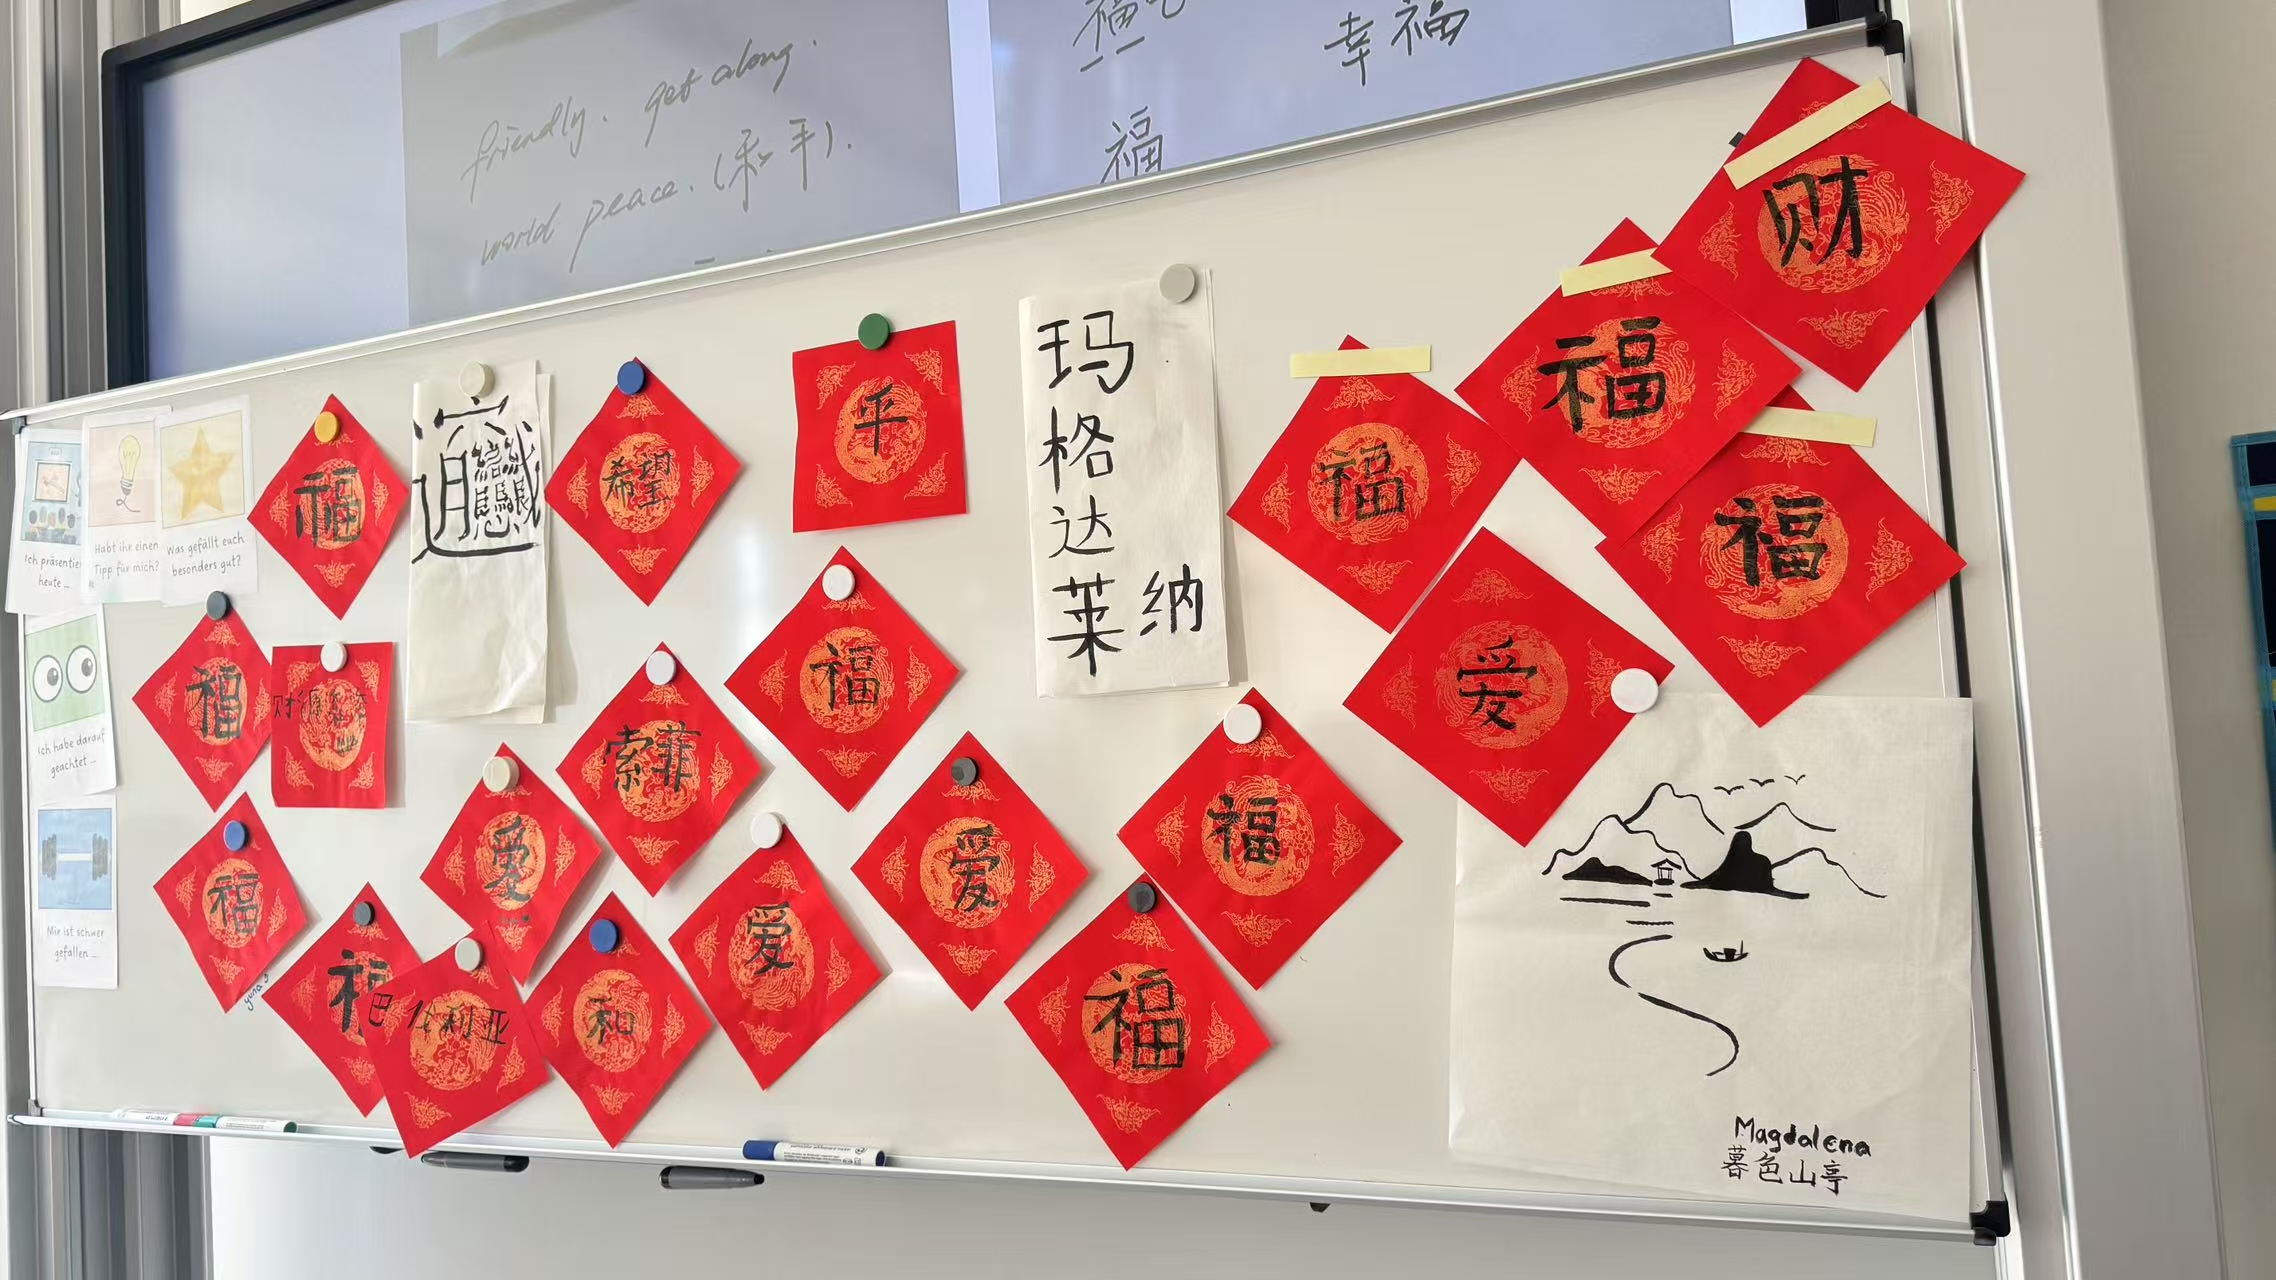 福
幸福
friendly. get along.
world peace. (和平).
福
财
福
平
玛
格
达
莱 纳
福
福
希望
福
爱
福
福
索菲
福
爱
爱
爱
福
福
福
福
巴伐利亚
和
Ich präsentie
heute ...
Habt ihr einen
Tipp für mich?
Was gefällt euch
besonders gut?
Ich habe darauf
geachtet ...
Mir ist schwer
gefallen ...
yuna
Magdalena
暮色山亭